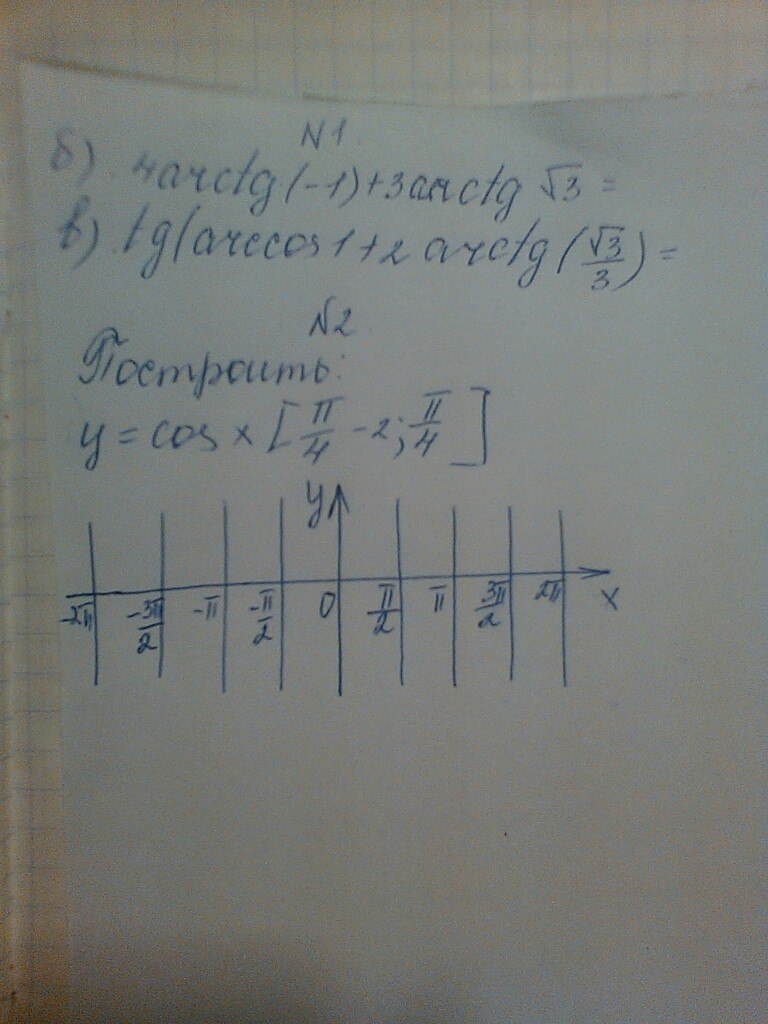 N1.
б) 4arctg(-1)+3arctg √3 =
в) tg(arccos1+2 arctg(√3/3) =
N2
Построить:
y = cos x [π/4 -2; π/4]
y
-2π -3π/2 -π -π/2 0 π/2 π 3π/2 2π x